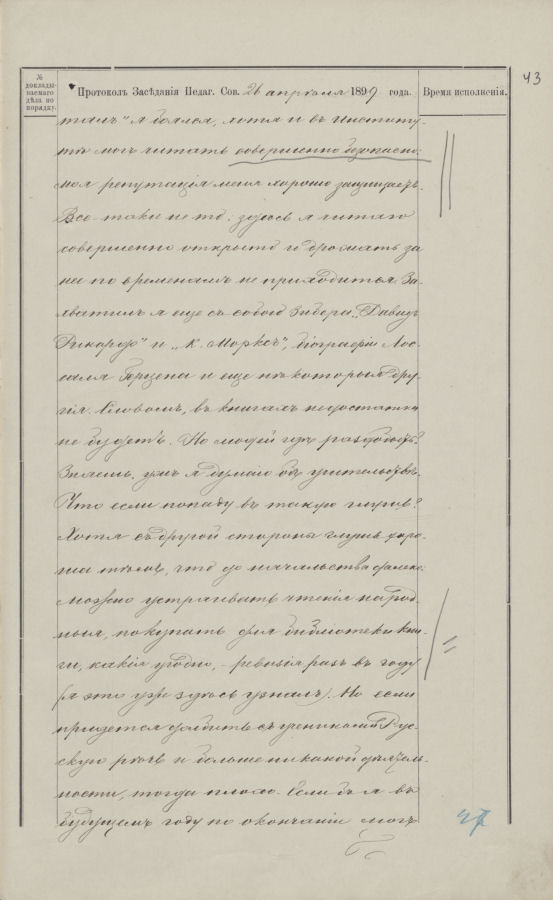 43
№ докладываемаго дѣла по порядку.
Протоколъ Засѣданія Педаг. Сов. 26 апрѣля 1899 года.
Время исполненія.
талъ" я боялся, хотя и въ Институ-
тѣ могъ читать совершенно безопасно:
моя репутація меня хорошо защищаетъ.
Все-таки не то: здѣсь я читаю
совершенно открыто и дрожать за
не по временамъ не приходится. За-
хватилъ я еще съ собою Зибера, "Давидъ
Рикардо" и "К. Марксъ", біографіи Лас-
саля Герцена и еще нѣкоторыя дру-
гія. Словомъ, въ книгахъ недостатка
не будетъ. Но людей гдѣ раздобыть?
Знаешь, ужъ я думаю объ учительствѣ.
Что если попаду въ такую глушь?
Хотя съ другой стороны глушь хоро-
ша тѣмъ, что до начальства далеко:
можно устраивать чтенія народ-
ныя, покупать для библіотеки кни-
ги, какія угодно, - ревизія разъ въ году
(я это уже здѣсь узналъ). Но если
придется долбить съ учениками Рус-
скую рѣчь и больше никакой дѣятель-
ности, тогда плохо. Если бъ я въ
будущемъ году по окончаніи могъ